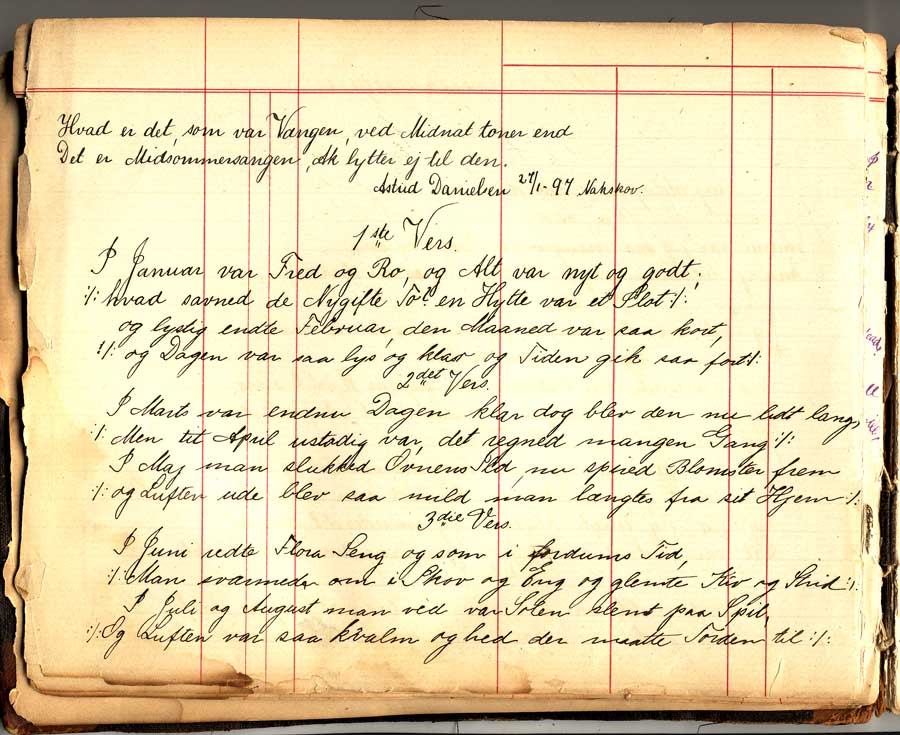 Hvad er det, som var Vængen, ved Midnat toner end
Det er Midsommersangen, Ak lytter ej til den.
Astrid Danielsen 27/1-97 Nakskov.
1ste Vers.
I Januar var Fred og Ro, og Alt var nyt og godt,
:/: hvad savned de Nygifte To? en Hytte var et Slot :/:
og lystig endte Februar, den Maaned var saa kort,
:/: og Dagen var saa lys og klar og Tiden gik saa fort :/:
2det Vers.
I Marts var endnu Dagen klar dog blev den nu lidt lang,
:/: Men tit April ustadig var, det regned mangen Gang :/:
I Maj man slukked Ovnens Ild, nu spired Blomster frem
:/: og Luften ude blev saa mild man længtes fra sit Hjem :/:
3die Vers.
I Juni redte Flora Seng og som i fordums Tid,
:/: Man sværmede om i Skov og Eng og glemte Kiv og Strid :/:
I Juli og August man ved var Solen slemt paa Spil,
:/: Og Luften var saa kvalm og hed der maatte Torden til :/: